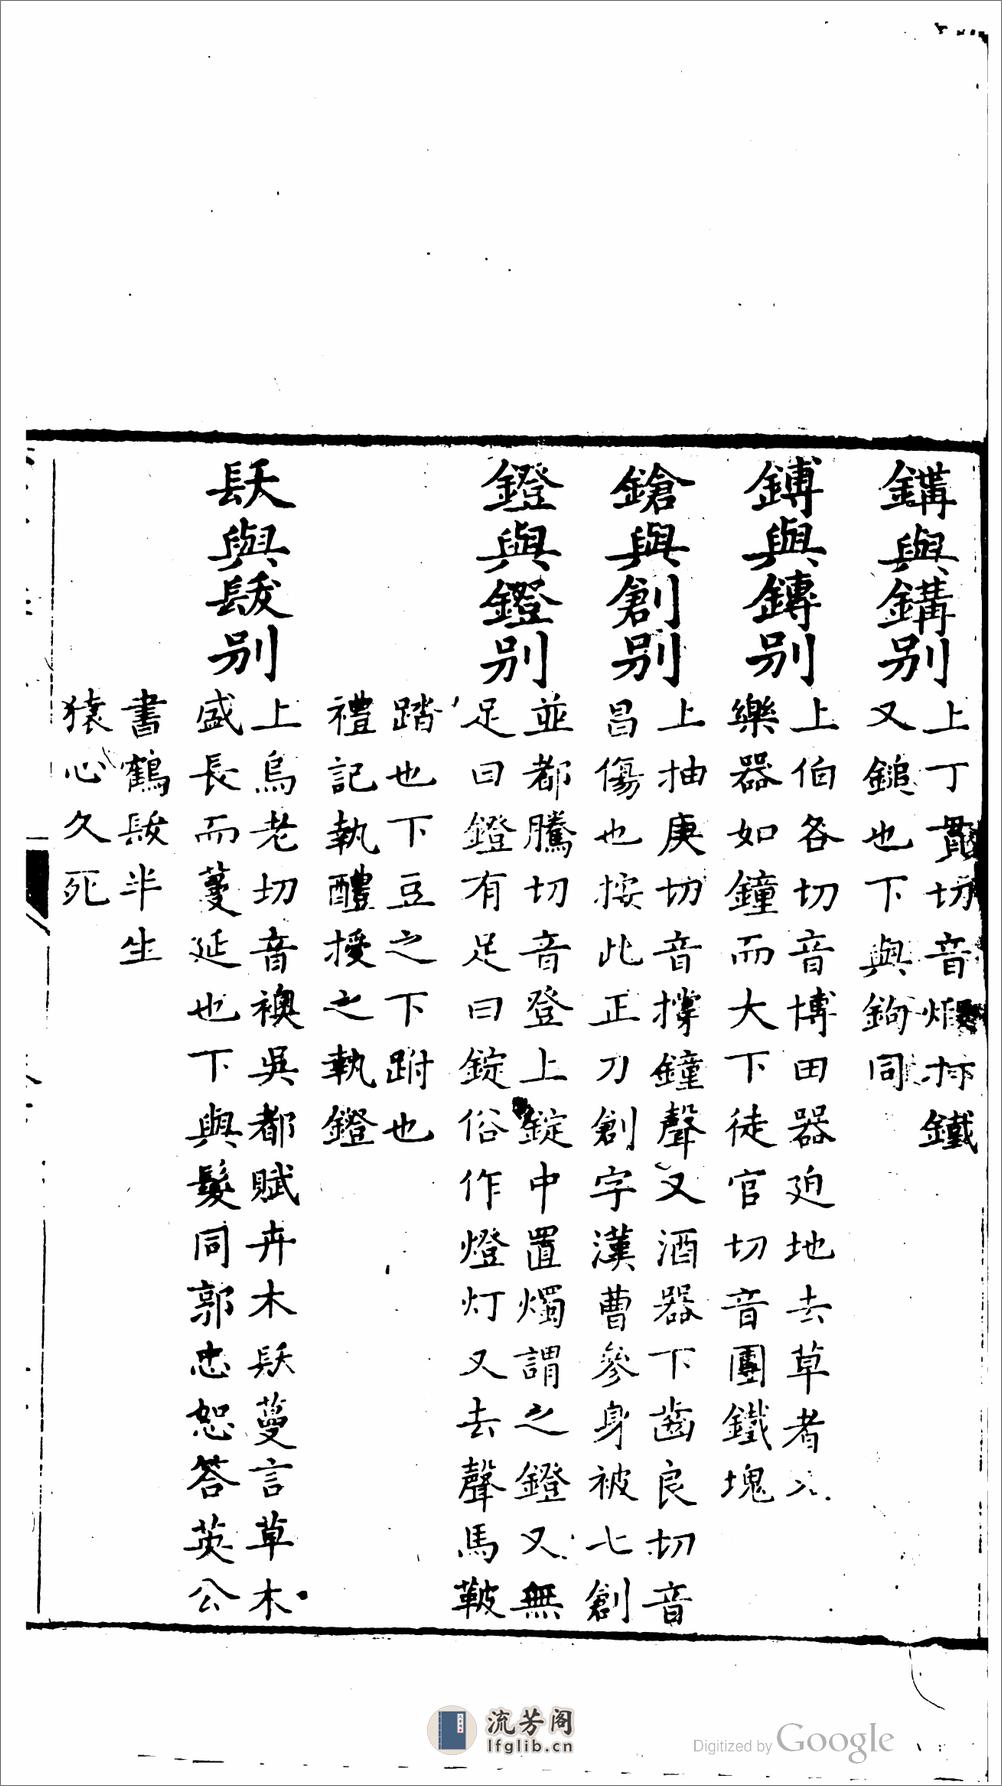 鍜與鏂別
上丁貫切音煅打鐵
又鎚也下與鉤同
鎛與鏄別
上伯各切音博田器迫地去草者又
樂器如鐘而大下徒官切音團鐵塊
鎗與創別
上抽庚切音撐鐘聲又酒器下齒良切音
昌傷也按此正刀創字漢曹參身被七創
鐙與鐙別
並都騰切音登上錠中置燭謂之鐙又無
足曰鐙有足曰錠俗作燈灯又去聲馬鞁
踏也下豆之下跗也
禮記執醴授之執鐙
镺與髮別
上烏老切音襖吳都賦卉木镺蔓言草木
盛長而蔓延也下與髮同郭忠恕答英公
書鶴髮半生
猿心久死
流芳阁
lfglib.cn
Digitized by Google